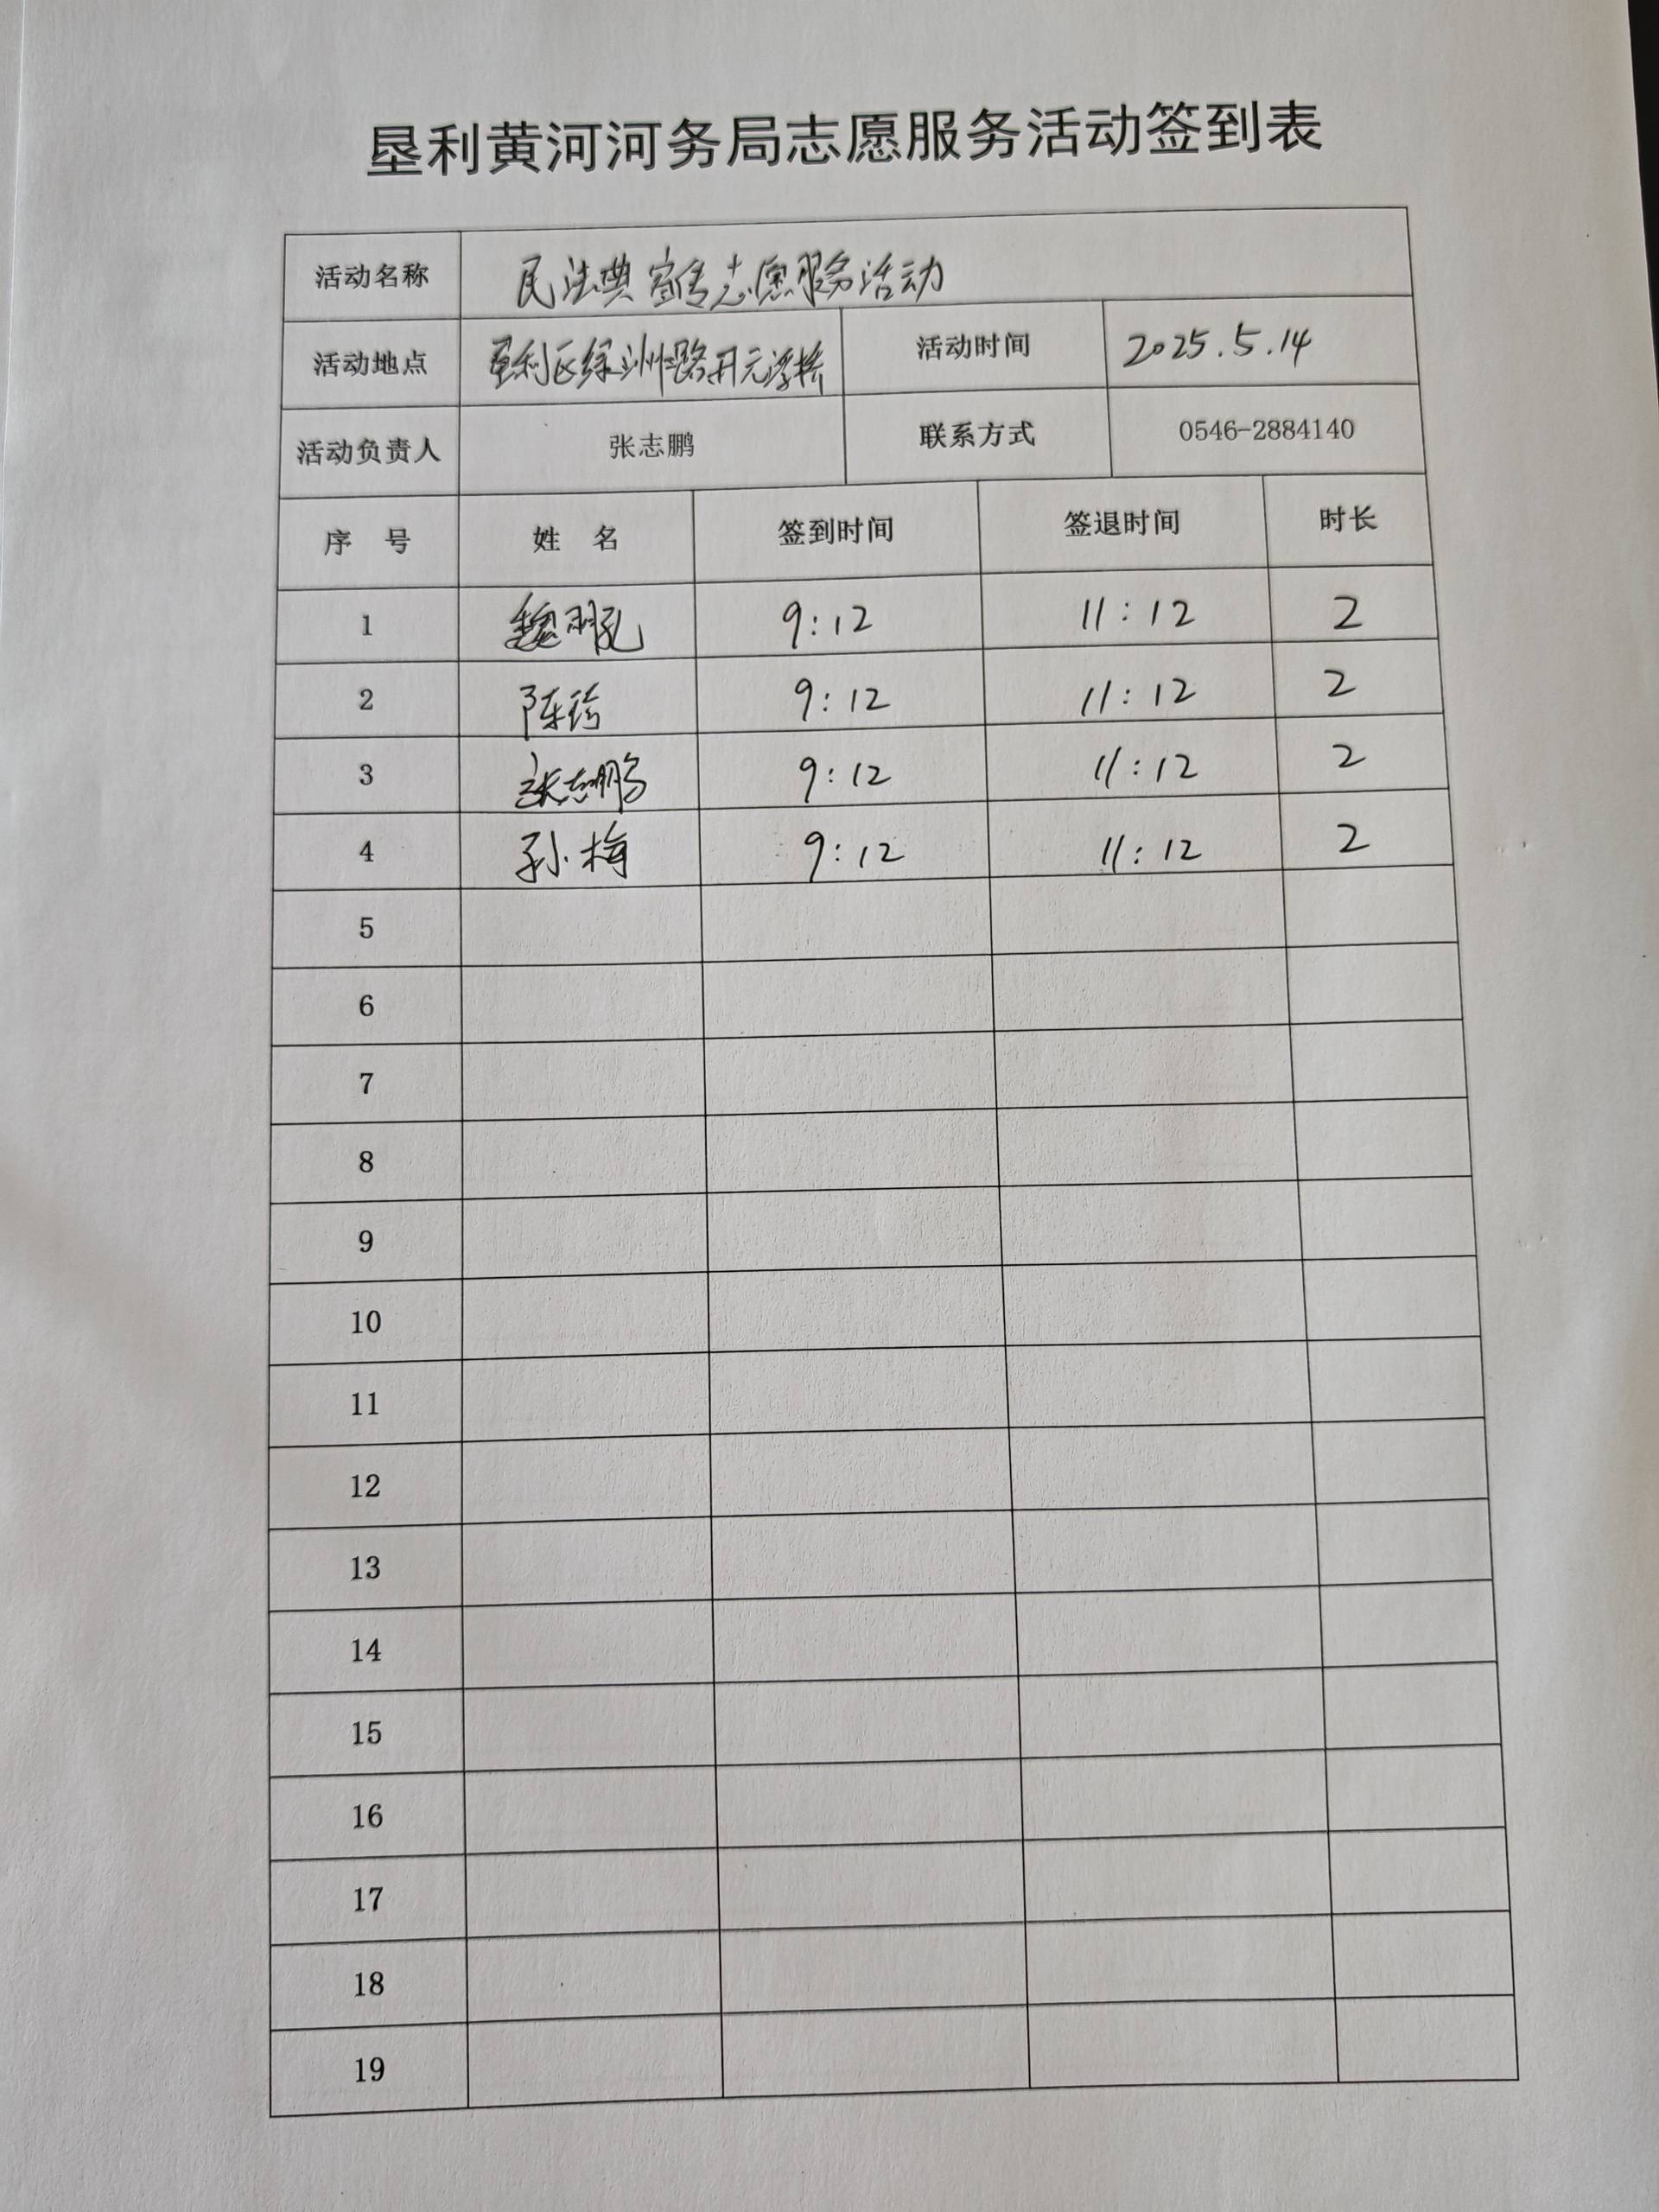 垦利黄河河务局志愿服务活动签到表
活动名称 民法典宣传志愿服务活动
活动地点 垦利区绿洲路开元浮桥 活动时间 2025.5.14
活动负责人 张志鹏 联系方式 0546-2884140
序 号 姓 名 签到时间 签退时间 时长
1 魏 9:12 11:12 2
2 陈 9:12 11:12 2
3 张志鹏 9:12 11:12 2
4 孙梅 9:12 11:12 2
5
6
7
8
9
10
11
12
13
14
15
16
17
18
19